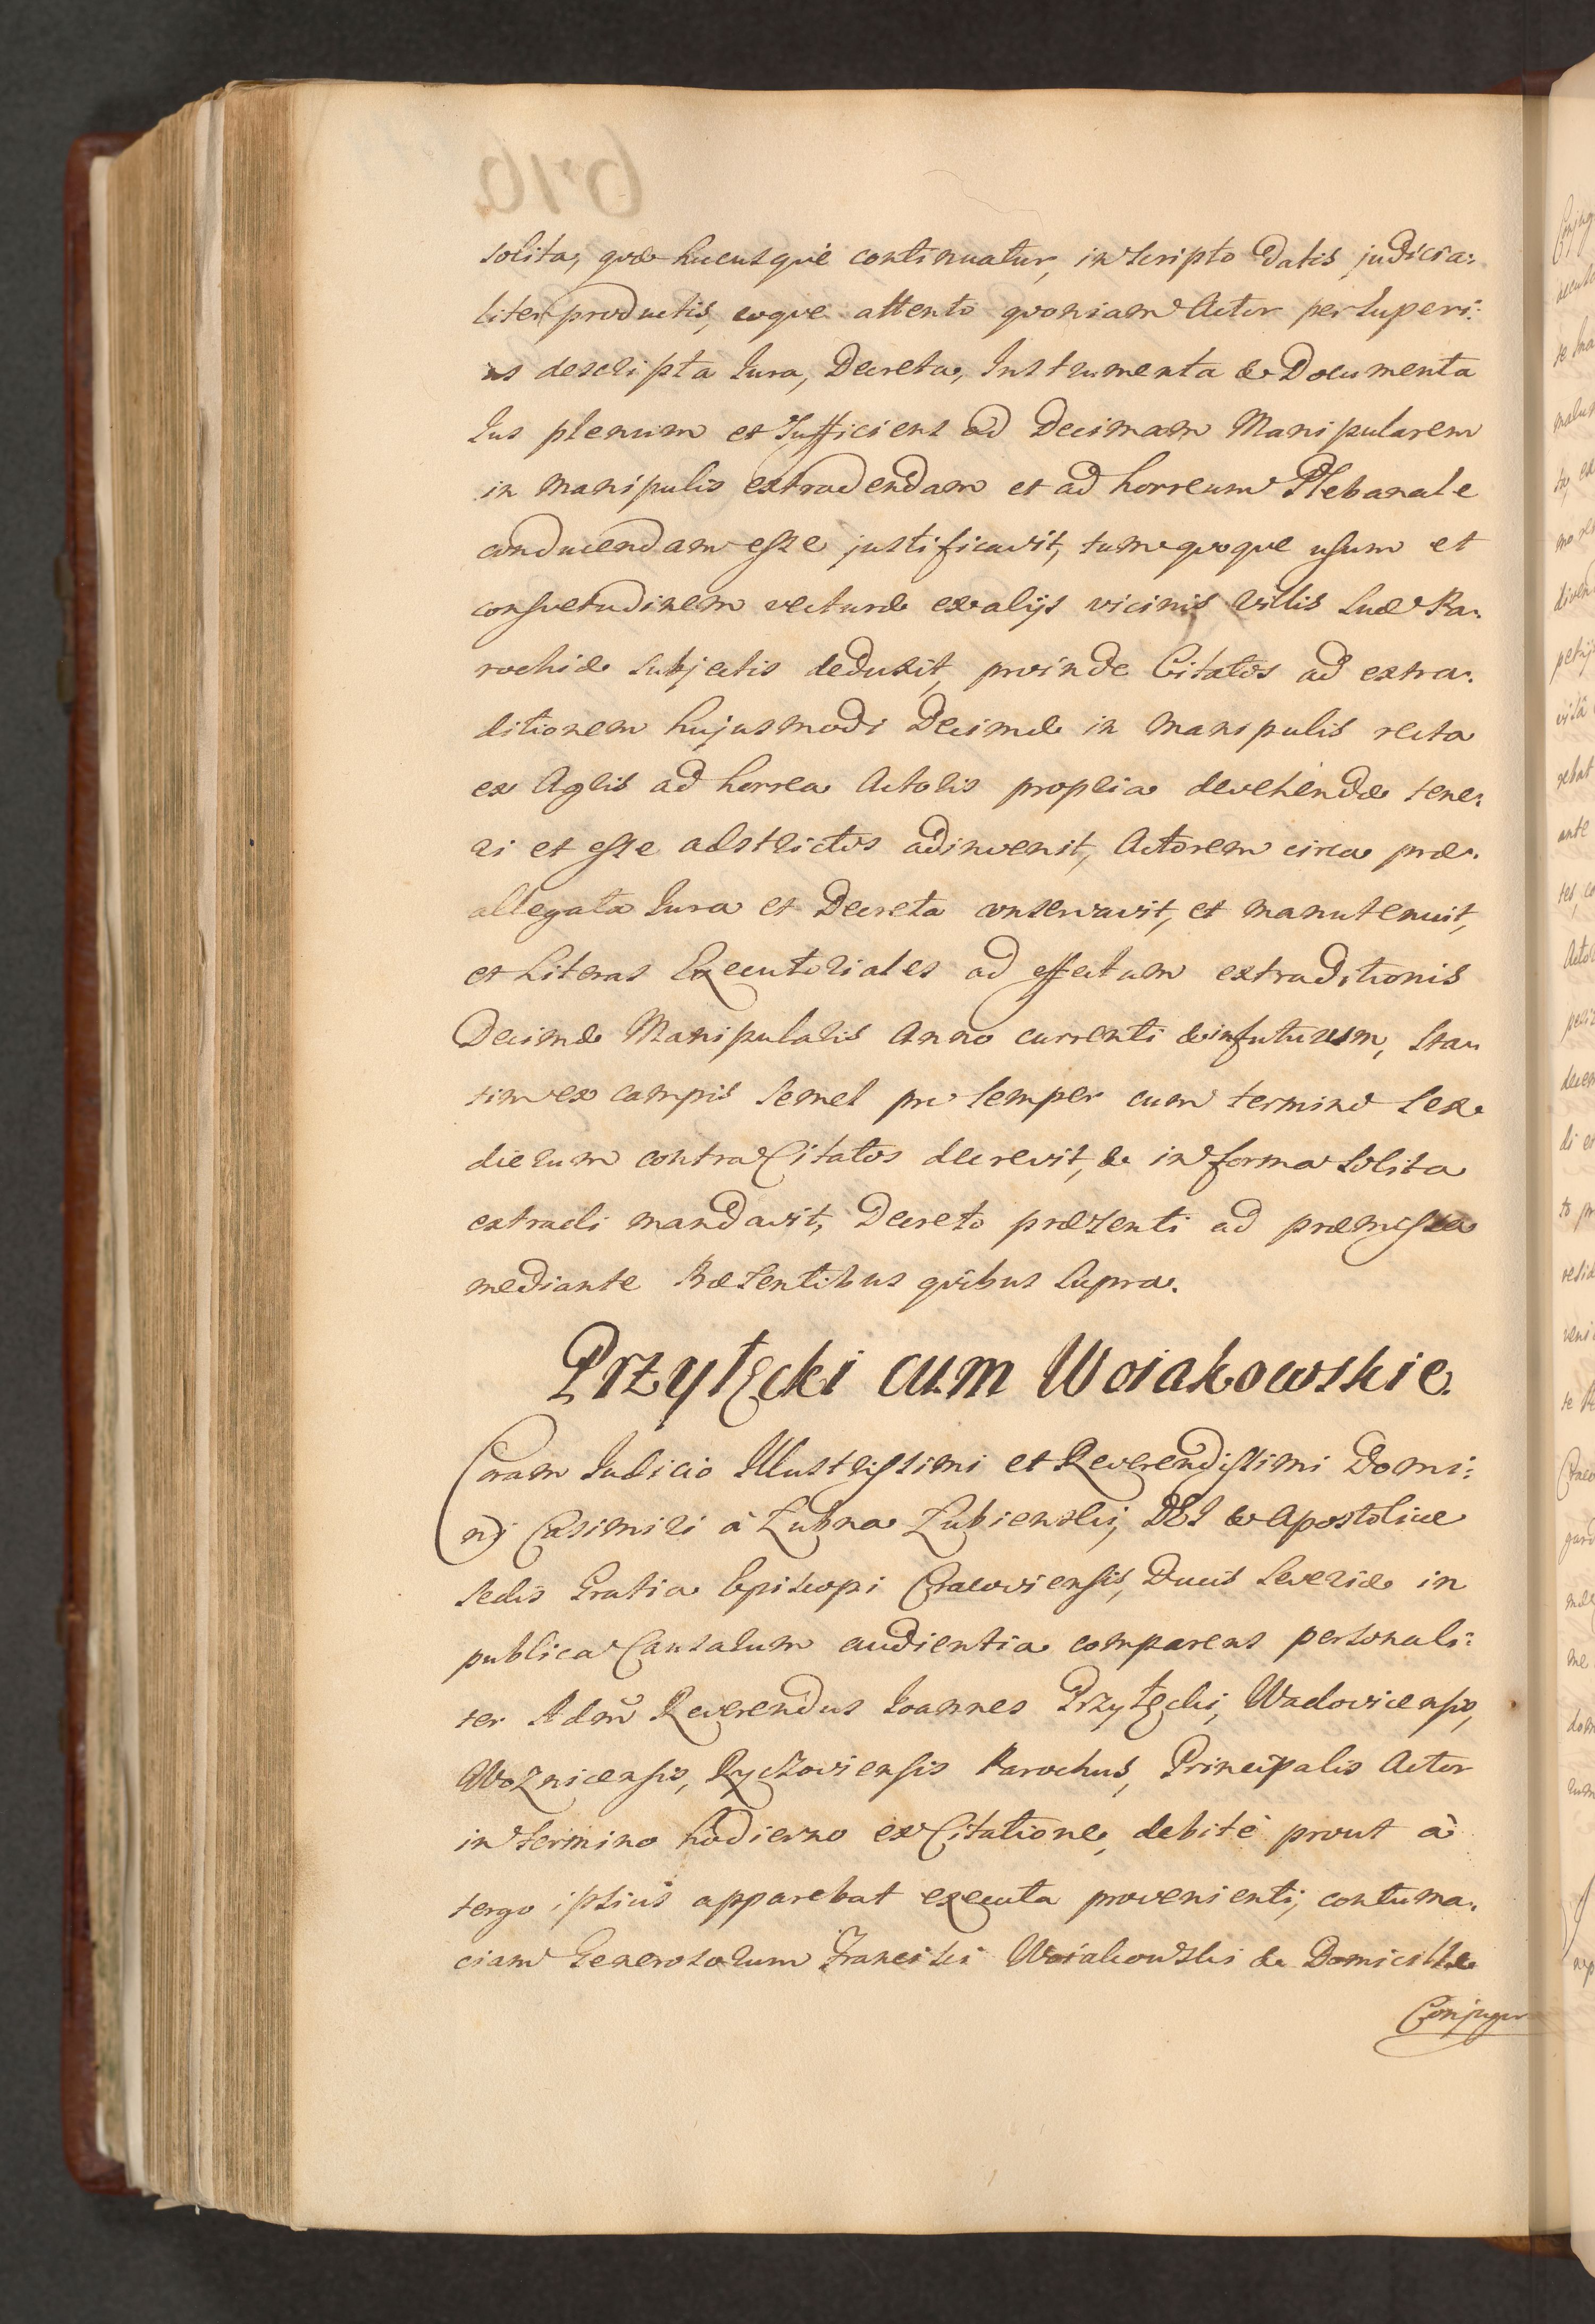 solita, quæ hucusquè continuatur, in scripto datis, judicia:
liter productis, eoque attento quoniam Actor per superi:
us descripta Iura, Decreta, Instrumenta & Documenta
Ius plenum et sufficiens ad Decimam Manipularem
in manipulis extradendam et ad horreum Plebanale
conducendam esse justificavit, tum quoque usum et
consvetudinem vecturæ ex alijs vicinis Villis suæ Pa:
rochiæ subjectis deduxit, proinde Citatos ad extra:
ditionem hujusmodi Decimæ in manipulis recta
ex Agris ad horrea Actoris propria devehendæ tene:
ri et esse adstrictos adinvenit, Actorem circa præ:
allegata Iura et Decreta conservavit, et manutenuit,
et Literas Executoriales ad effectum extraditionis
Decimæ Manipularis Anno currenti & in futurum, sta
tim ex campis semel pro semper cum termino sex
dierum contra Citatos decrevit, & in forma solita
extradi mandavit, Decreto præsenti ad præmissa
mediante Præsentibus quibus supra.
Przyłęcki cum Woiakowskie.
Coram Iudicio Illustrissimi et Reverendissimi Domi:
ni Casimiri à Łubna Łubienski, DEI & Apostolicæ
Sedis Gratia Episcopi Cracoviensis, Ducis Severiæ in
publica Causarum audientia comparens personali:
ter Adm̃ Reverendus Ioannes Przyłęcki, Wadovicensis,
Woznicensis, Ryczoviensis Parochus, Principalis Actor
in termino hodierno ex Citatione, debitè prout à
tergo ipsius apparebat executa provenienti, contuma:
ciam Generosorum Francisci Woiakowski & Domicillæ
Conjugum